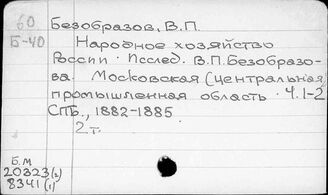 60
Б-40
Безобразов, В.П.
Народное хозяйство
России. Исслед. В.П. Безобразо-
ва. Московская (центральная)
промышленная область. Ч.1-2
СПб., 1882-1885
2 т.
Б.м
20323(2)
8341(1)